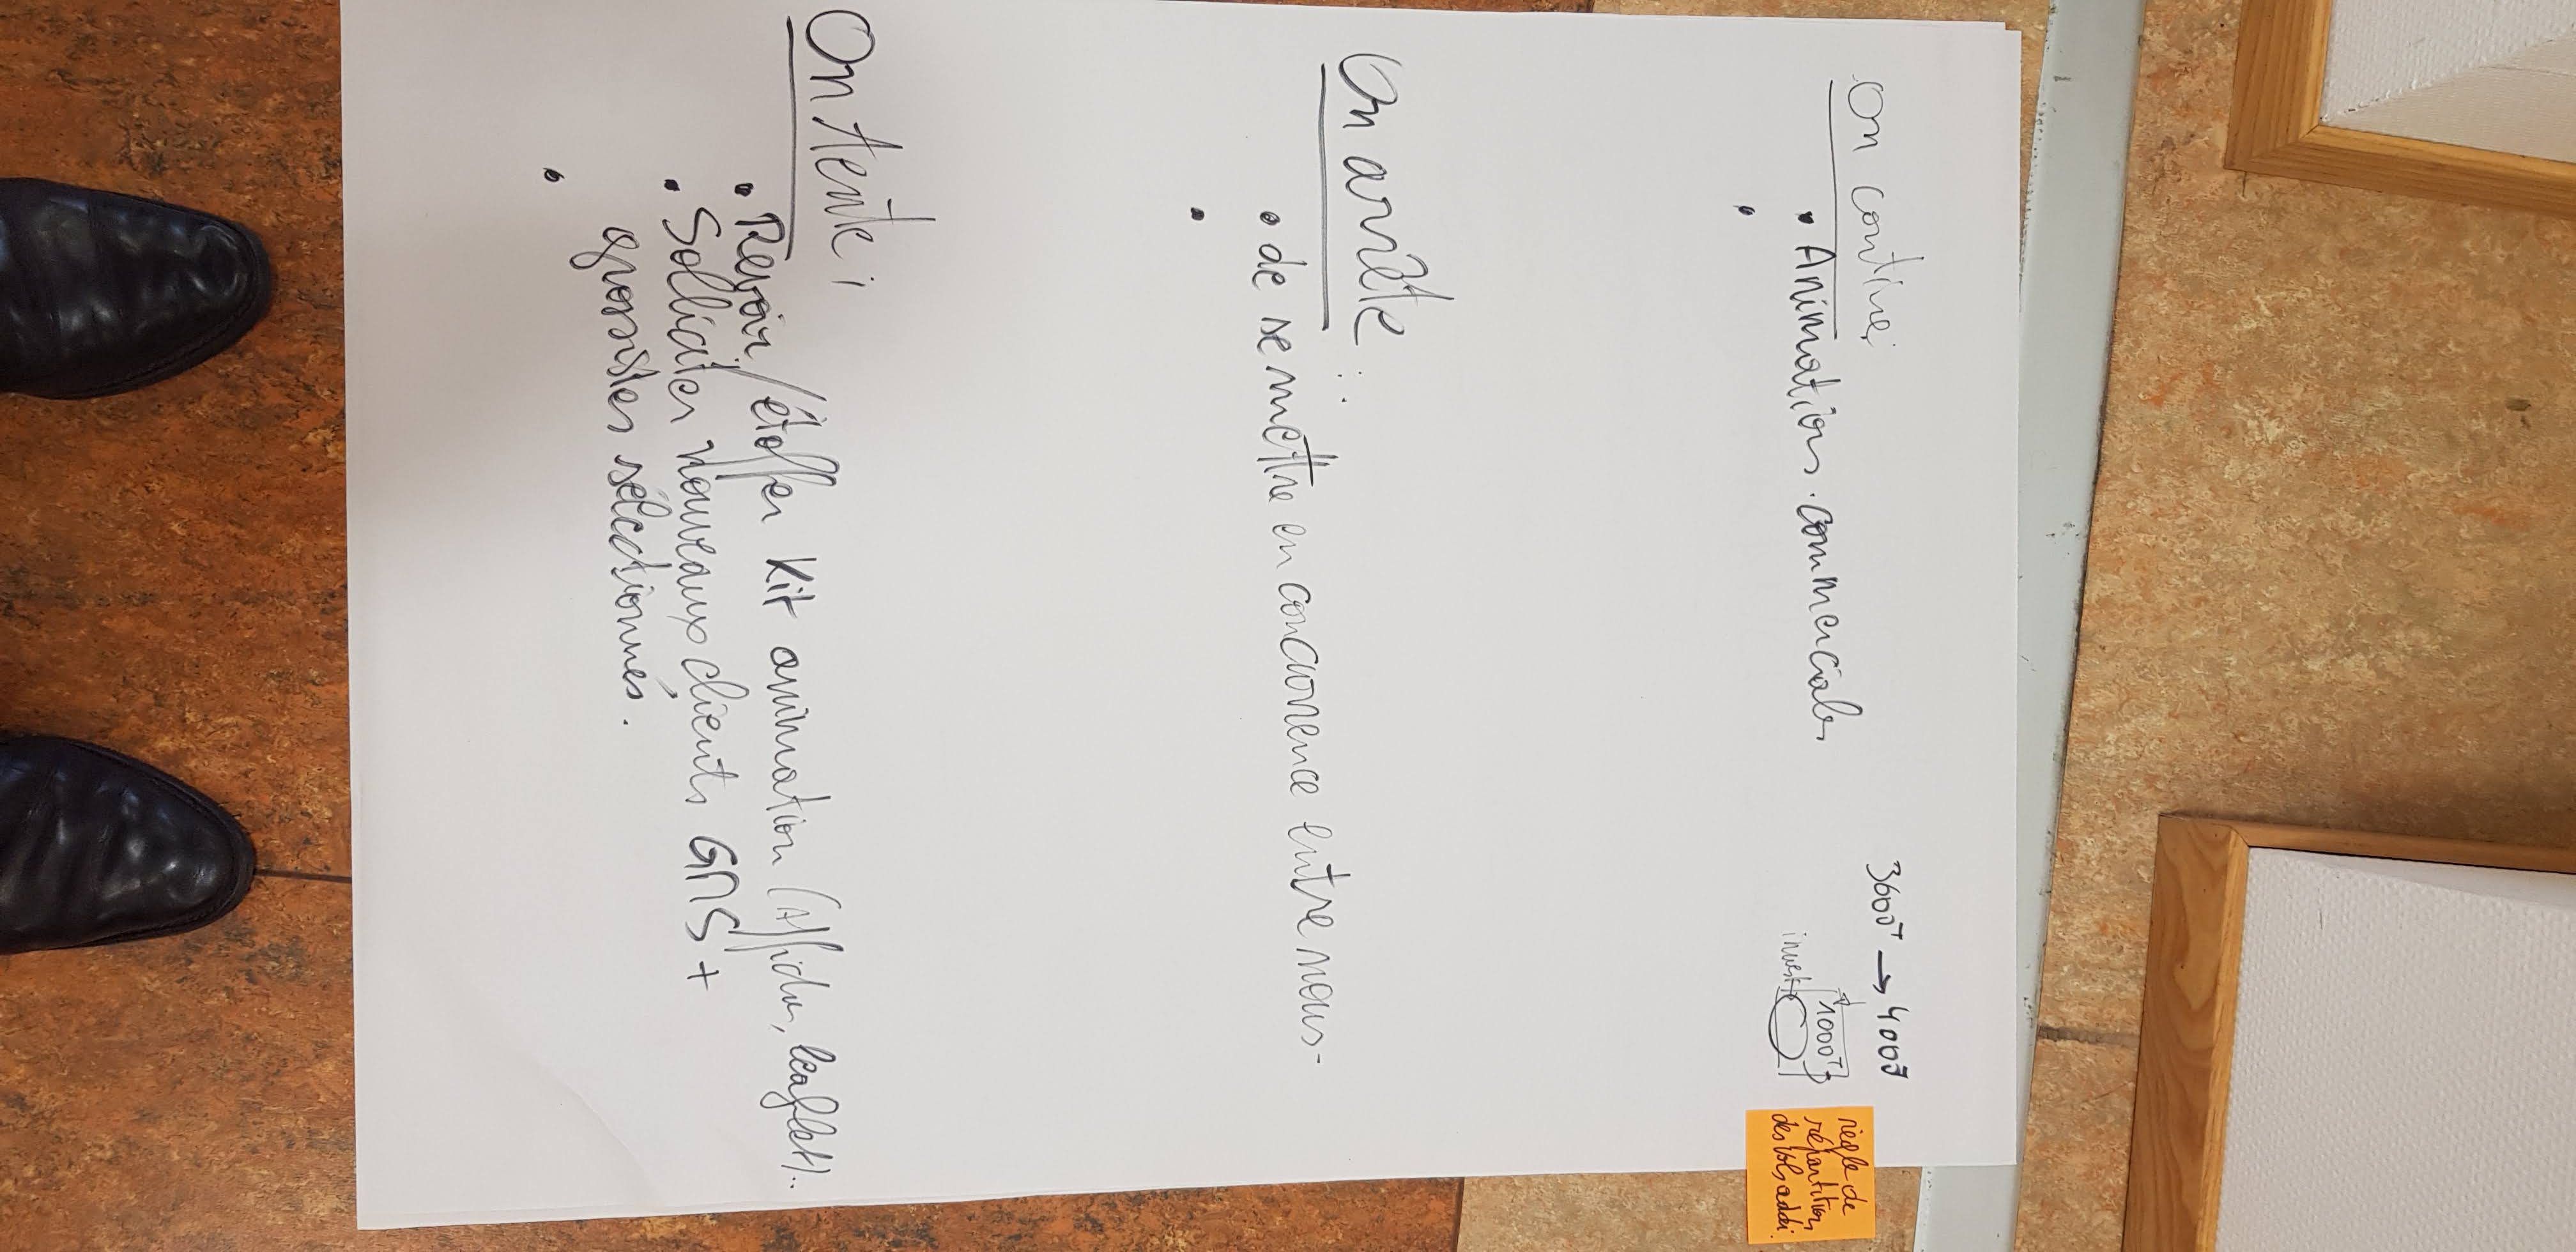 On continue;
• Animations commerciales
3600T → 4000T
1000T
invest
règle de
répartition
des Vols addi.
On arrête :
• de se mettre en concurrence entre nous.
•
On tente :
• Revoir / étoffer Kit animation (Affiche, leaflet)..
• Solliciter nouveaux clients GMS +
grossistes sélectionnés.
•